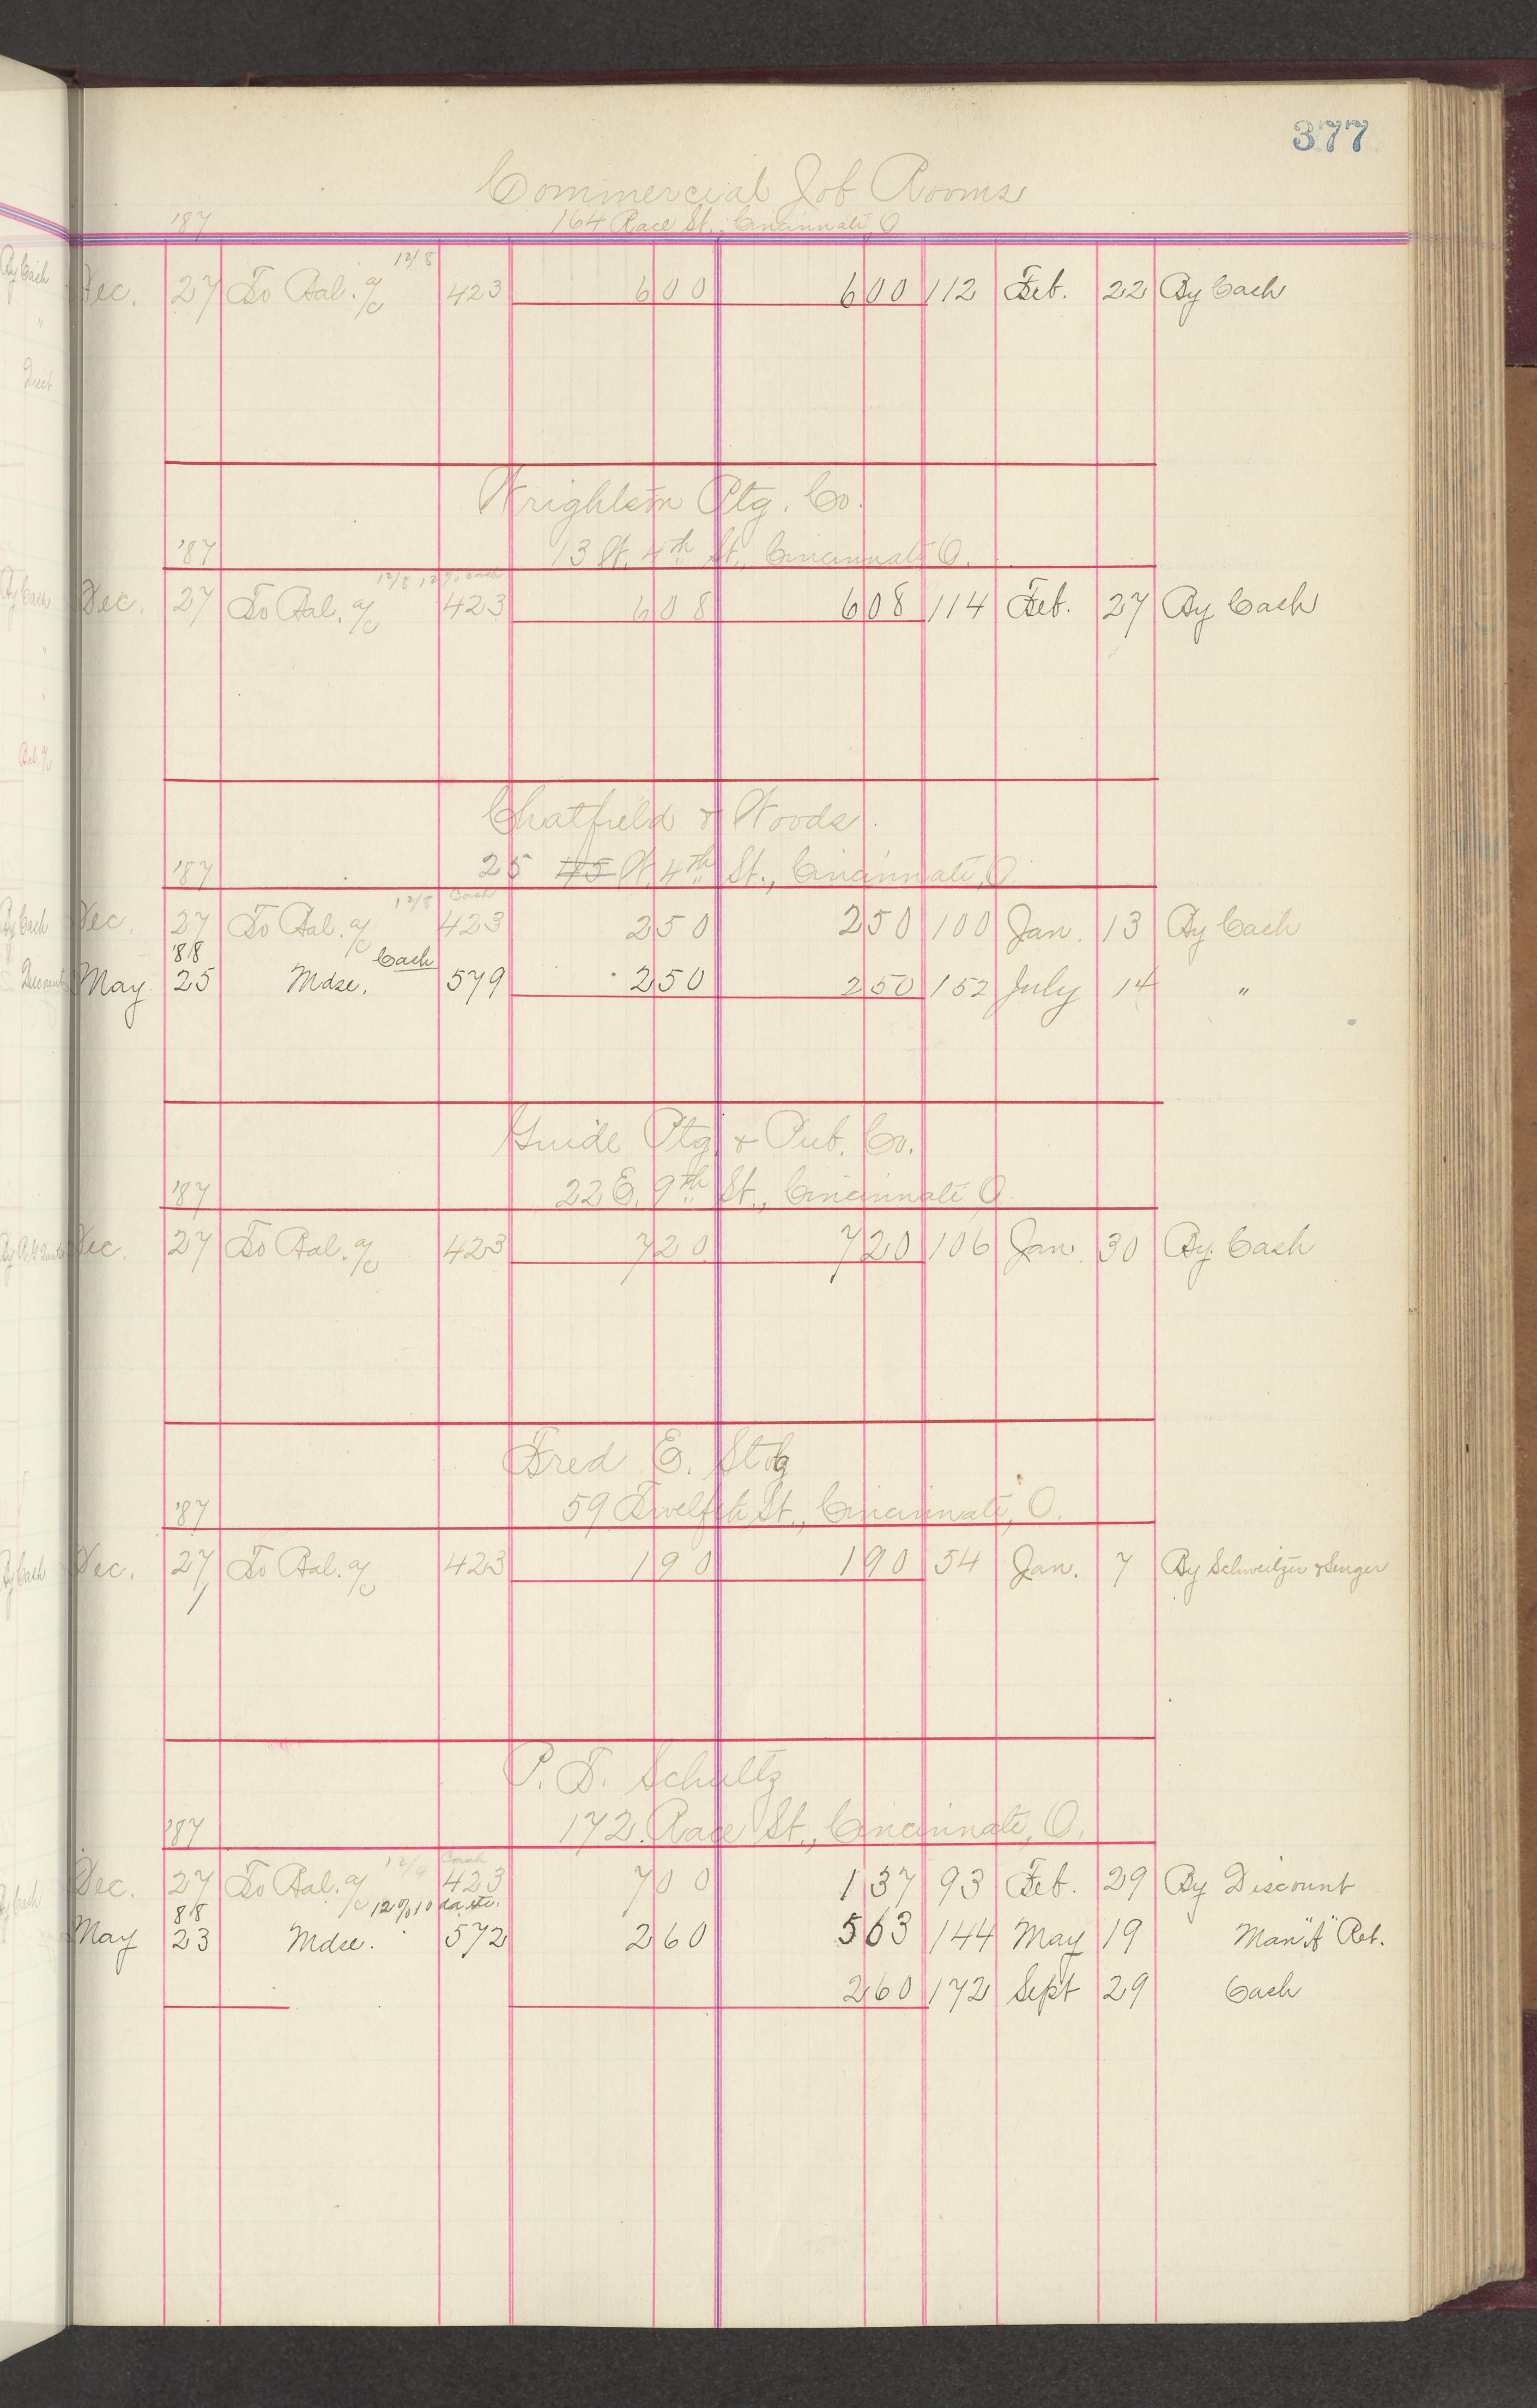 377
Commercial Job Rooms
'87 164 Race St., Cincinnati, O
12/8
Dec. 27 To Bal. a/c 423 600 600 112 Feb. 22 By Cash
Wrightson Ptg. Co.
'87 13 W. 4th St., Cincinnati O.
12/8
Dec. 27 To Bal. a/c 423 608 608 114 Feb. 27 By Cash
Chatfield & Woods.
'87 25 45 W. 4th St., Cincinnati, O.
12/8 Cash
Dec. 27 To Bal. a/c 423 250 250 100 Jan. 13 By Cash
'88 Cash
May 25 Mdse. 579 250 250 152 July 14 "
Guide Ptg & Pub. Co.
'87 22 E. 9th St., Cincinnati O.
Dec. 27 To Bal. a/c 423 720 720 106 Jan. 30 By Cash
Fred E.
'87 59 Twelfth St., Cincinnati, O.
Dec. 27 To Bal. a/c 423 190 190 54 Jan. 7 By Schweitzer & Senger
P. T. Schultz
'87 172 Race St., Cincinnati, O.
Cash
Dec. 27 To Bal. a/c 423 700 137 93 Feb. 29 By Discount
88
May 23 Mdse. 572 260 563 144 May 19 Man"f" Ret.
260 172 Sept 29 Cash